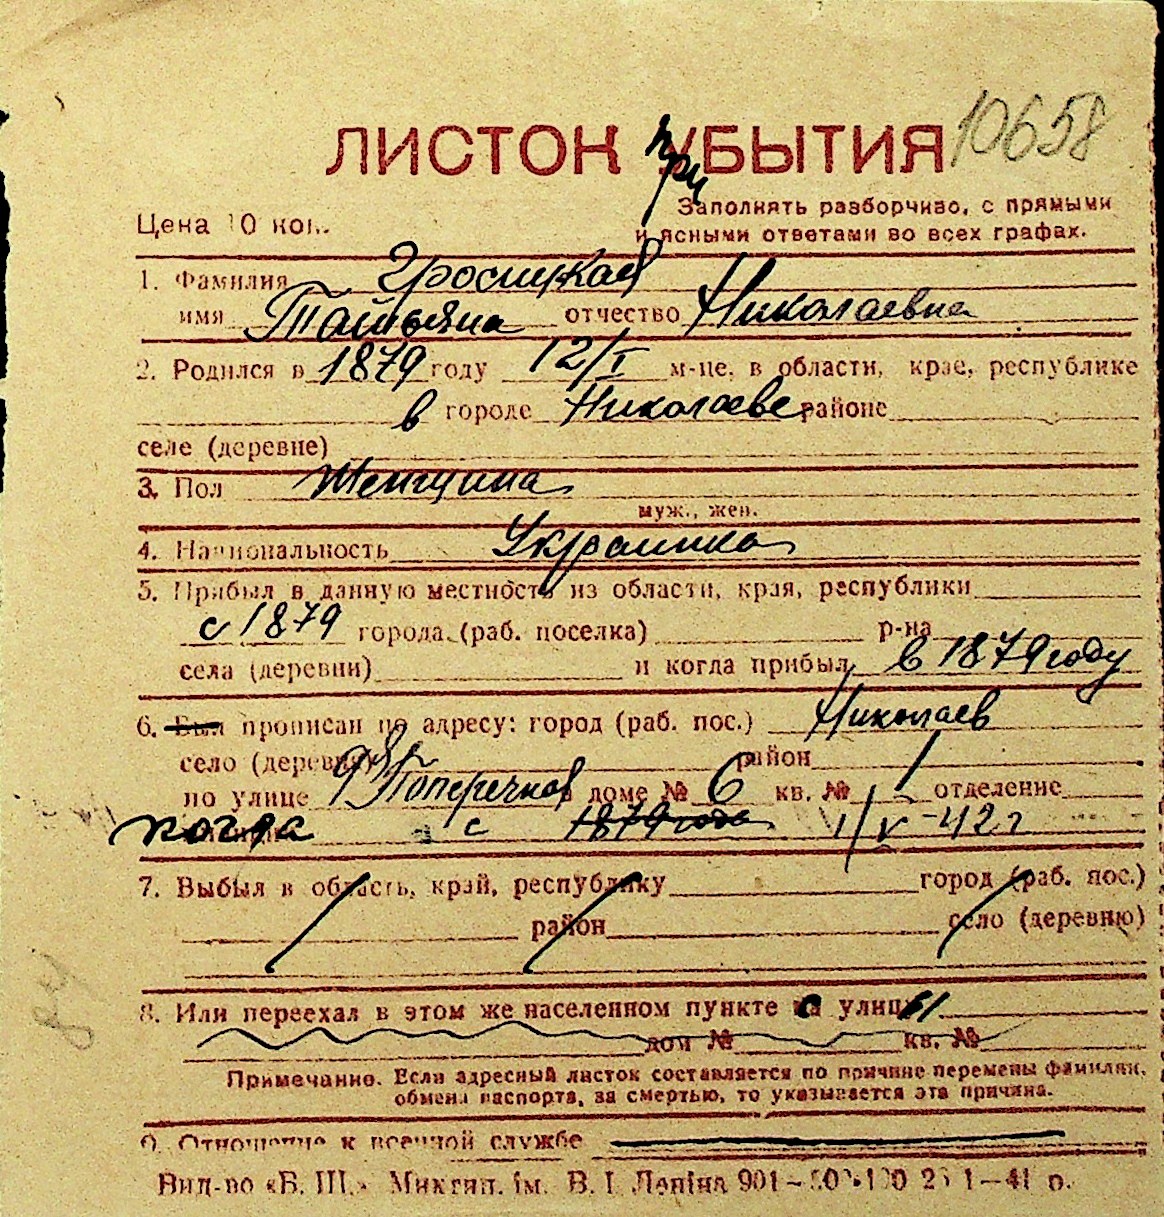 10658
ЛИСТОК УБЫТИЯ
при
Цена 10 коп.
Заполнять разборчиво, с прямыми
и ясными ответами во всех графах.
1. Фамилия
имя Татьяна отчество Николаевна
2. Родился в 1879 году 12/I м-це, в области, крае, республике
в городе Николаеве районе
селе (деревне)
3. Пол Женщина
муж., жен.
4. Национальность Украинка
5. Прибыл в данную местность из области, края, республики
с 1879 города (раб. поселка) р-на
села (деревни) и когда прибыл в 1879 году
6. Был прописан по адресу: город (раб. пос.) Николаев
село (деревня) район
по улице Поперечной в доме № 6 кв. № отделение
когда с 1879 года 1/V-42 г
7. Выбыл в область, край, республику город (раб. пос.)
район село (деревню)
8. Или переехал в этом же населенном пункте с улицы
дом № кв. №
Примечание. Если адресный листок составляется по причине перемены фамилии,
обмена паспорта, за смертью, то указывается эта причина.
9. Отношение к военной службе
Вид-во «Б. Ш.» Микгип. ім. В. І. Леніна 901